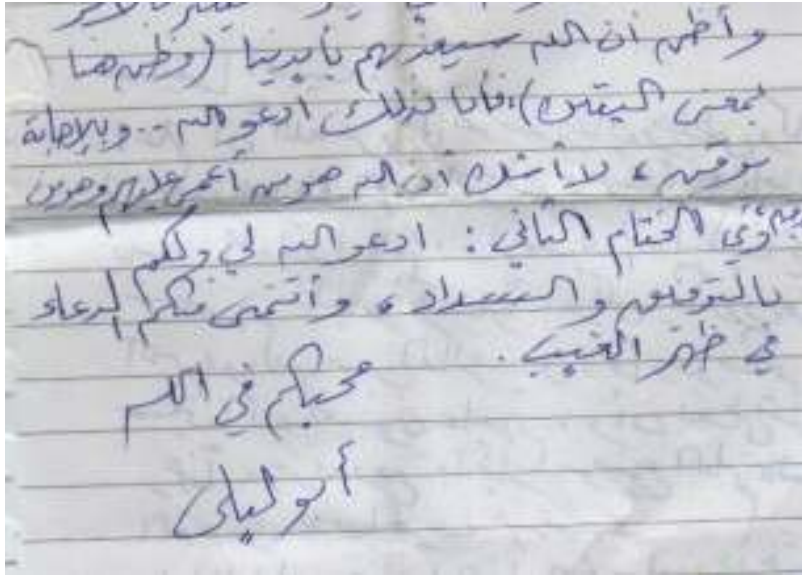 وأظن أن الله سيعذبهم بأيدينا (وظن هنا
بمعنى اليقين)، فأنا كذلك أدعو الله.. وبالإجابة
موقن، لا أشك أن الله هو من أعمى عليهم وهو من
وفي الختام الثاني: ادعو الله لي ولكم
بالتوفيق والسداد، وأتمنى منكم الدعاء
في ظهر الغيب.
محبكم في الله
أبو ليلى